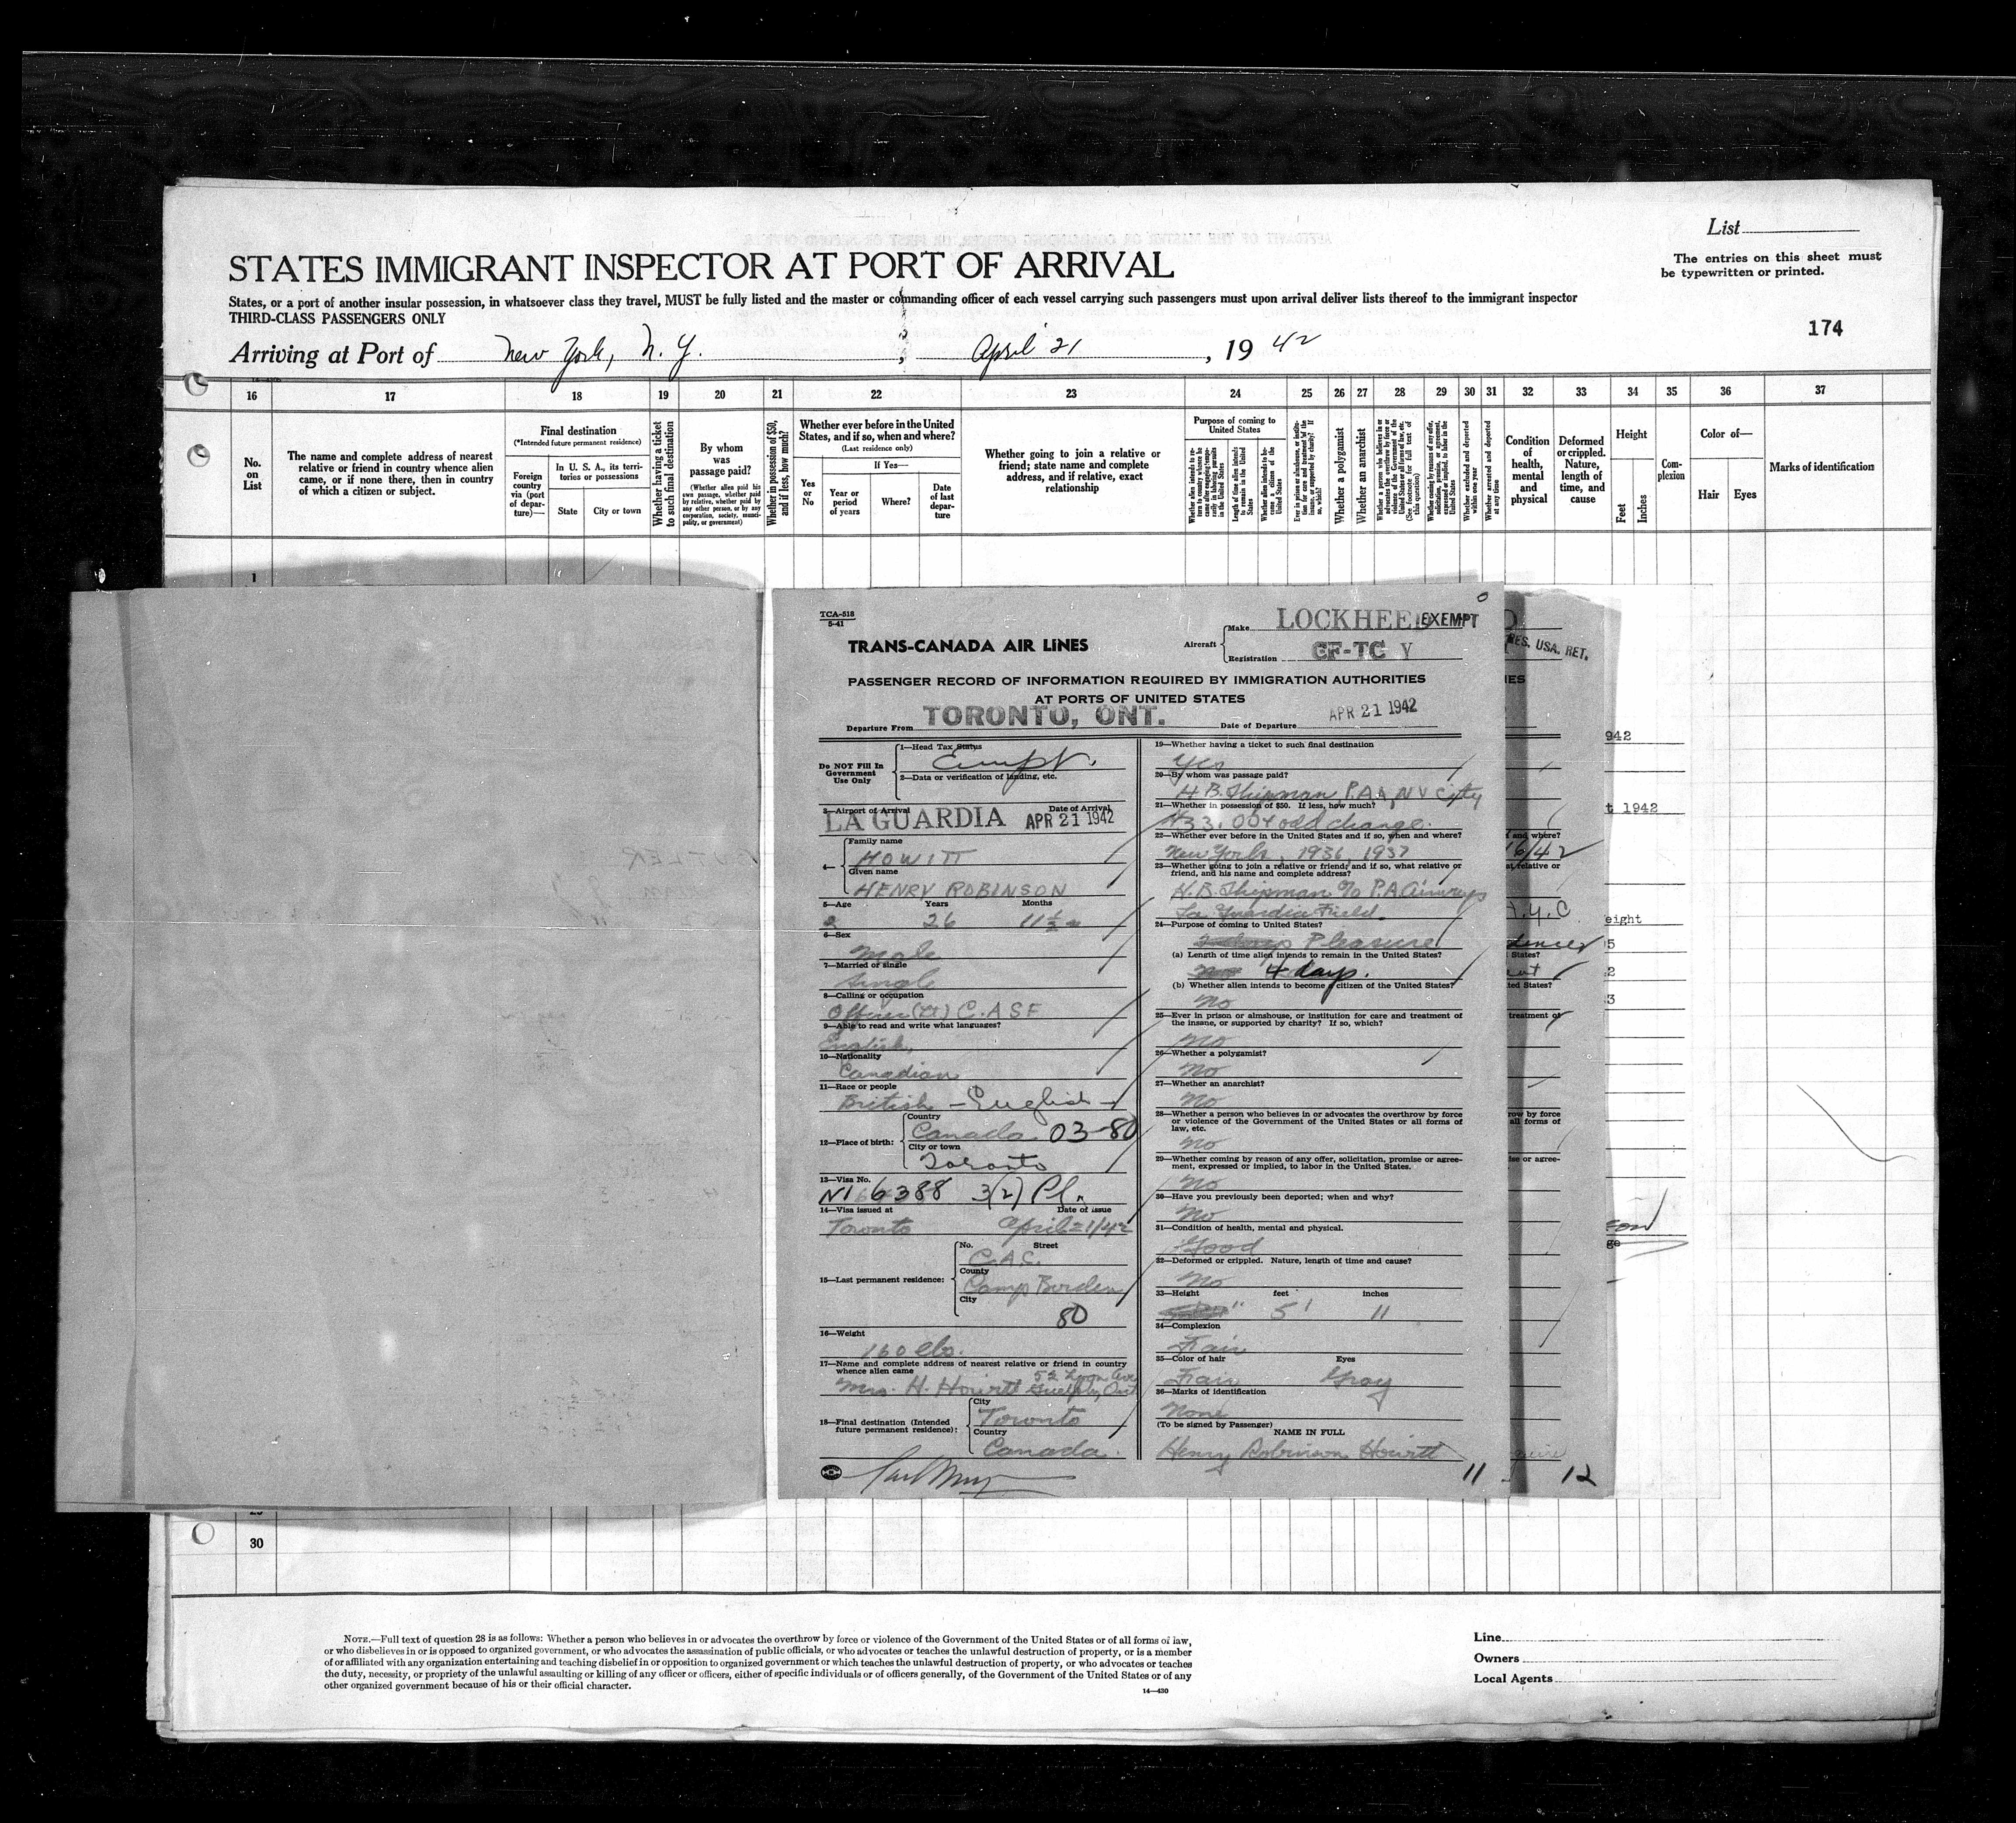 List
The entries on this sheet must
be typewritten or printed.
STATES IMMIGRANT INSPECTOR AT PORT OF ARRIVAL
States, or a port of another insular possession, in whatsoever class they travel, MUST be fully listed and the master or commanding officer of each vessel carrying such passengers must upon arrival deliver lists thereof to the immigrant inspector
THIRD-CLASS PASSENGERS ONLY
174
Arriving at Port of New York, N. Y. , April 21 , 19 42
16 17 18 19 20 21 22 23 24 25 26 27 28 29 30 31 32 33 34 35 36 37
No.
on
List
The name and complete address of nearest
relative or friend in country whence alien
came, or if none there, then in country
of which a citizen or subject.
Final destination
(*Intended future permanent residence)
Foreign
country
via (port
of depar-
ture)—
In U. S. A., its terri-
tories or possessions
State
City or town
Whether having a ticket
to such final destination
By whom
was
passage paid?
(Whether alien paid his
own passage, whether paid
by relative, whether paid by
any other person, or by any
corporation, society, munici-
pality, or government)
Whether in possession of $50,
and if less, how much?
Whether ever before in the United
States, and if so, when and where?
(Last residence only)
If Yes—
Yes
or
No
Year or
period
of years
Where?
Date
of last
depar-
ture
Whether going to join a relative or
friend; state name and complete
address, and if relative, exact
relationship
Purpose of coming to
United States
Whether a polygamist
Whether an anarchist
Whether excluded and deported
within one year
Whether arrested and deported
at any time
Condition
of
health,
mental
and
physical
Deformed
or crippled.
Nature,
length of
time, and
cause
Height
Feet
Inches
Com-
plexion
Color of—
Hair
Eyes
Marks of identification
1
TCA-518
5-41
TRANS-CANADA AIR LINES
Aircraft
Make LOCKHEED EXEMPT
Registration CF-TC V
PASSENGER RECORD OF INFORMATION REQUIRED BY IMMIGRATION AUTHORITIES
AT PORTS OF UNITED STATES
Departure From TORONTO, ONT. Date of Departure APR 21 1942
Do NOT Fill In
Government
Use Only
1—Head Tax Status
2—Data or verification of landing, etc.
3—Airport of Arrival Date of Arrival
LA GUARDIA APR 21 1942
4—
Family name
HOWITT
Given name
HENRY ROBINSON
5—Age Years Months
26 11½
6—Sex
Male
7—Married or single
Single
8—Calling or occupation
Officer (Lt) C.A.S.F
9—Able to read and write what languages?
English,
10—Nationality
Canadian
11—Race or people
British — English
12—Place of birth:
Country
Canada 03-80
City or town
Toronto
13—Visa No.
6388 3(2) Pl.
14—Visa issued at Date of issue
Toronto April 21/42
15—Last permanent residence:
No. Street
C.A.C.
County
Camp Borden
City
80
16—Weight
160 lbs.
17—Name and complete address of nearest relative or friend in country
whence alien came
52 Lyon Ave
Mrs. H. Howitt Guelph, Ont
18—Final destination (Intended
future permanent residence):
City
Toronto
Country
Canada.
19—Whether having a ticket to such final destination
Yes
20—By whom was passage paid?
H. B. Shipman P.A.A, N Y City
21—Whether in possession of $50. If less, how much?
$33.00 + odd change.
22—Whether ever before in the United States and if so, when and where?
New York, 1936, 1937
23—Whether going to join a relative or friend; and if so, what relative or
friend, and his name and complete address?
H. B. Shipman c/o P.A. Airways
La Guardia Field.
24—Purpose of coming to United States?
Pleasure
(a) Length of time alien intends to remain in the United States?
4 days.
(b) Whether alien intends to become a citizen of the United States?
No
25—Ever in prison or almshouse, or institution for care and treatment of
the insane, or supported by charity? If so, which?
No
26—Whether a polygamist?
No
27—Whether an anarchist?
No
28—Whether a person who believes in or advocates the overthrow by force
or violence of the Government of the United States or all forms of
law, etc.
No
29—Whether coming by reason of any offer, solicitation, promise or agree-
ment, expressed or implied, to labor in the United States.
No
30—Have you previously been deported; when and why?
No
31—Condition of health, mental and physical.
Good
32—Deformed or crippled. Nature, length of time and cause?
No
33—Height feet inches
5' 11
34—Complexion
Fair
35—Color of hair Eyes
Fair Gray
36—Marks of identification
None
(To be signed by Passenger)
NAME IN FULL
Henry Robinson Howitt
11
12
RES. USA. RET.
942
1942
eight
30
NOTE.—Full text of question 28 is as follows: Whether a person who believes in or advocates the overthrow by force or violence of the Government of the United States or of all forms of law,
or who disbelieves in or is opposed to organized government, or who advocates the assassination of public officials, or who advocates or teaches the unlawful destruction of property, or is a member
of or affiliated with any organization entertaining and teaching disbelief in or opposition to organized government or which teaches the unlawful destruction of property, or who advocates or teaches
the duty, necessity, or propriety of the unlawful assaulting or killing of any officer or officers, either of specific individuals or of officers generally, of the Government of the United States or of any
other organized government because of his or their official character.
14—430
Line
Owners
Local Agents